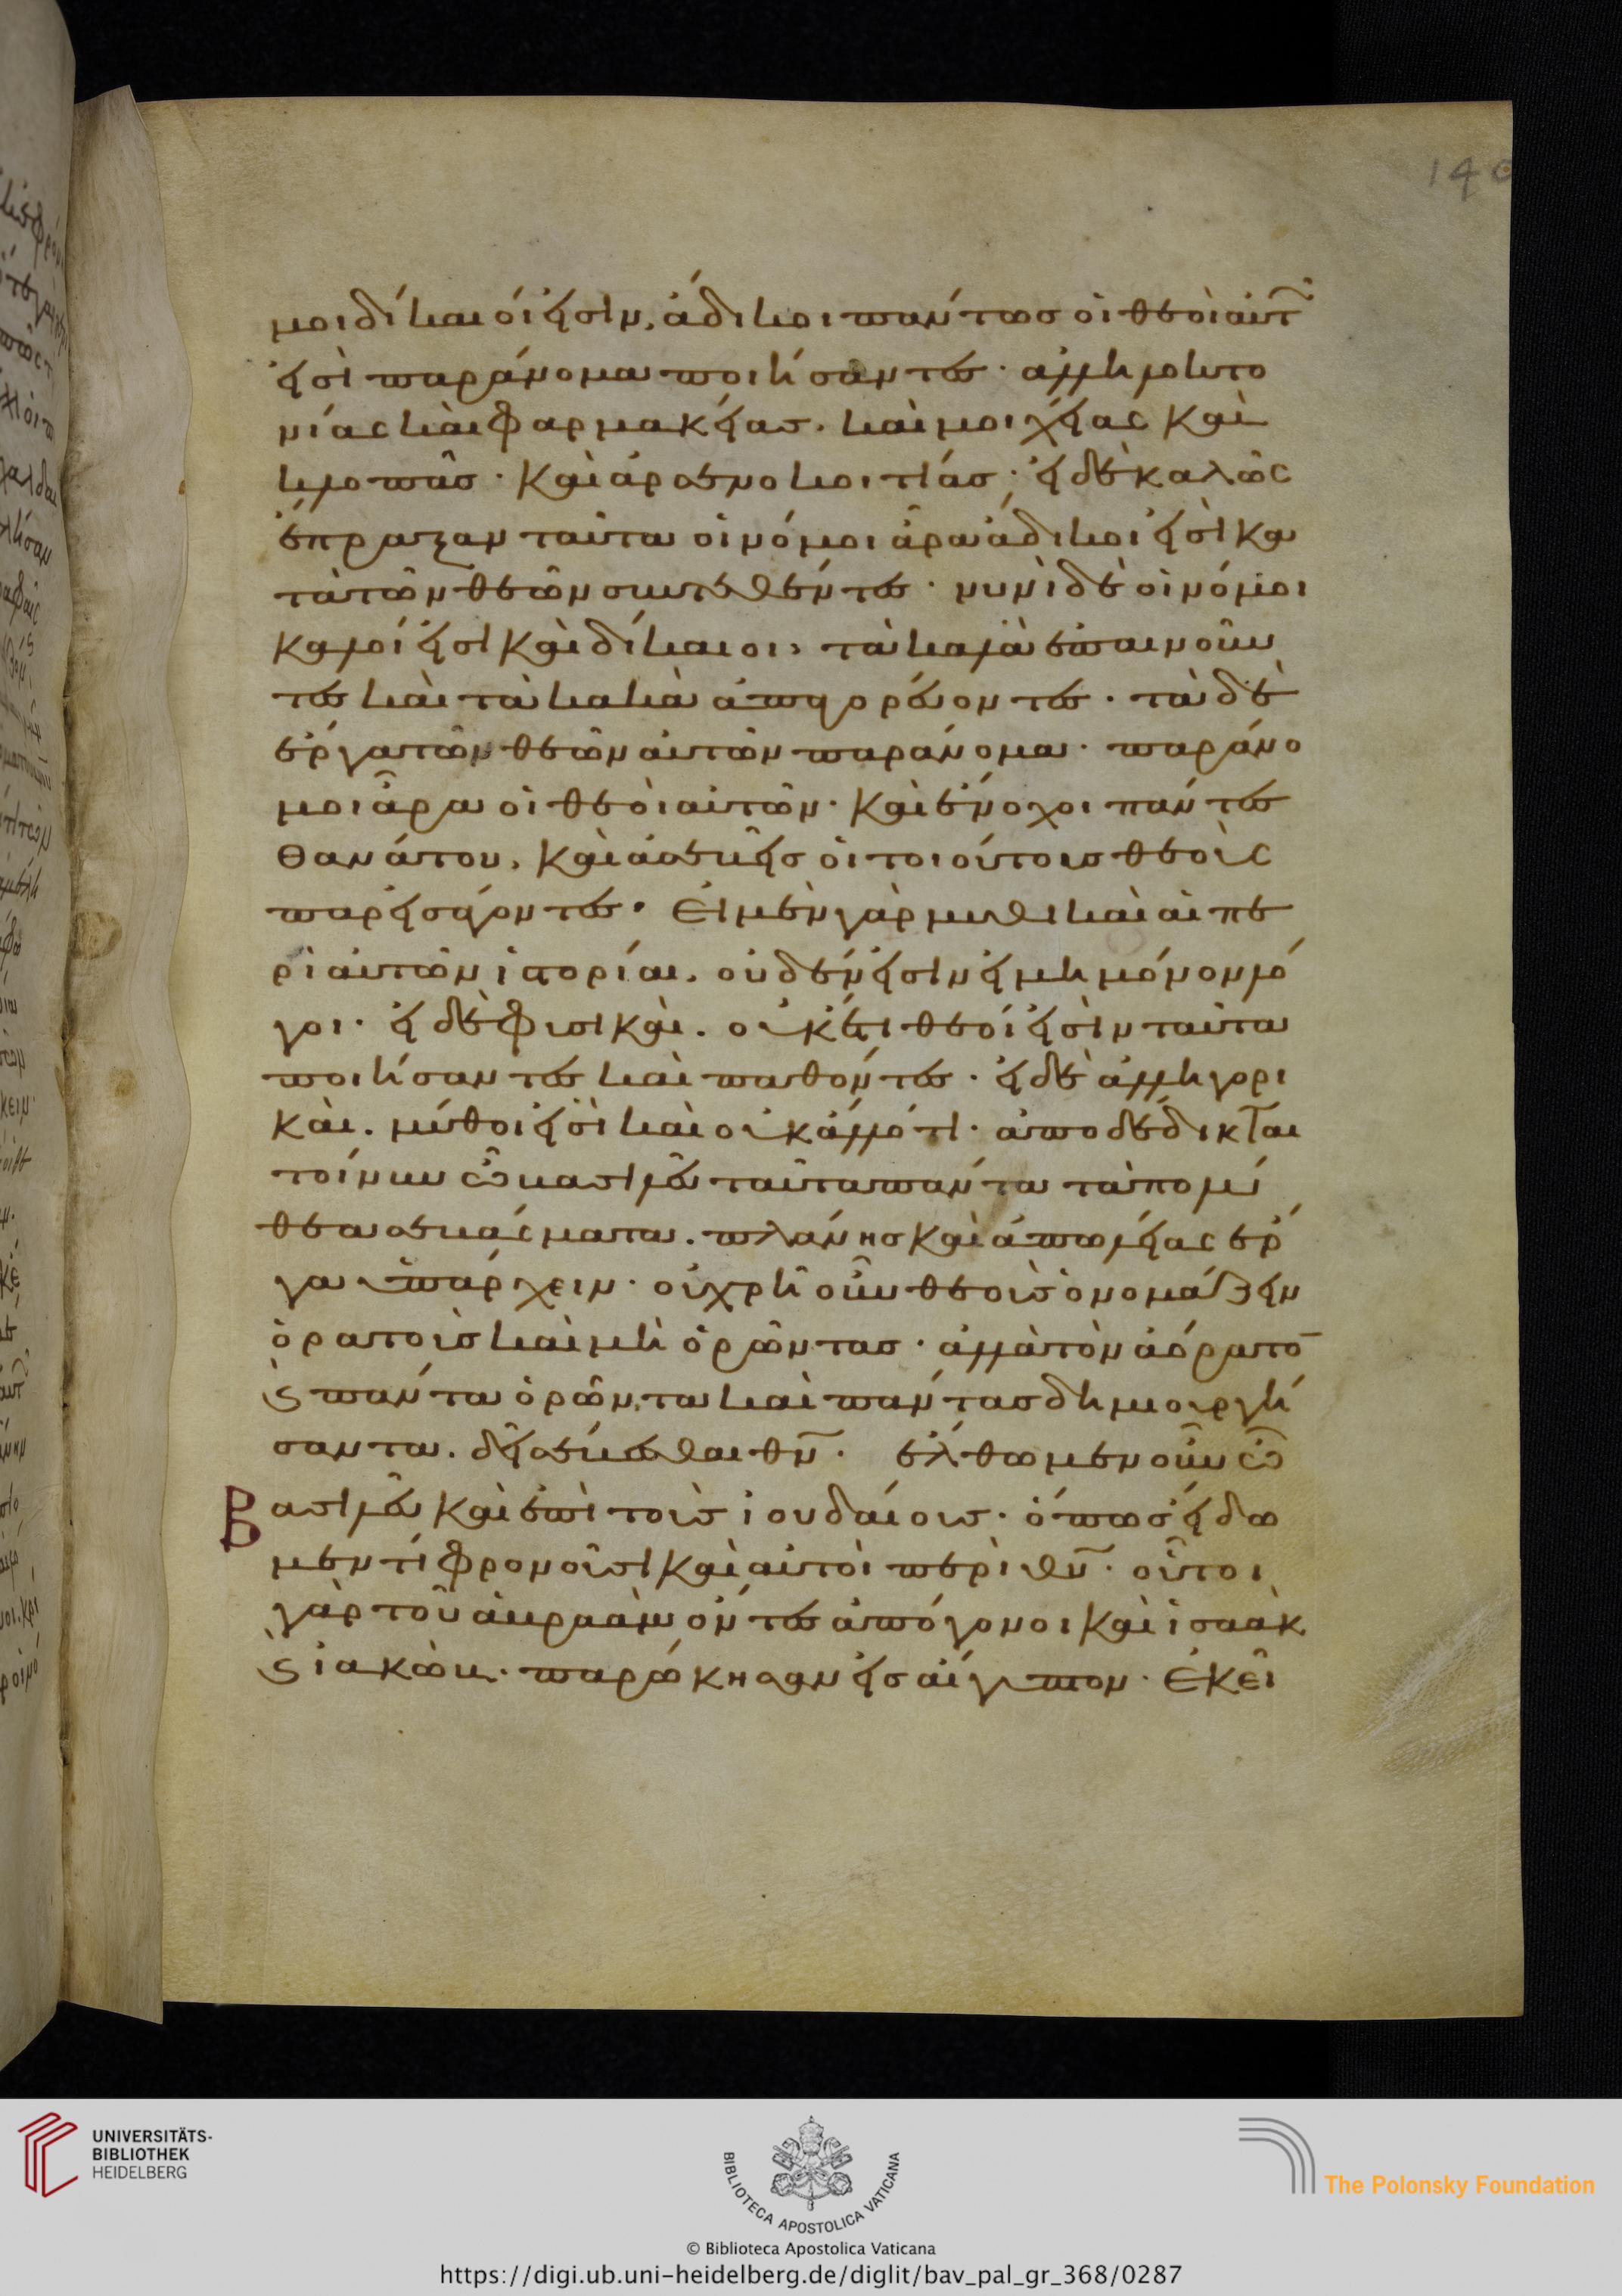 140
μοι δίκαιοί εἰσιν, ἄδικοι πάντως οἱ θεοὶ αὐτ
εἰσὶ παράνομα ποιήσαντες· ἀλληλοκτο
νίας καὶ φαρμακείας. καὶ μοιχείας καὶ
κλοπὰς· καὶ ἀρσενοκοιτίας· εἰ δὲ καλῶς
ἔπραξαν ταῦτα οἱ νόμοι ἄρα ἄδικοι εἰσὶ κα
τὰ τῶν θεῶν συντεθέντες· νυνὶ δὲ οἱ νόμοι
καλοί εἰσι καὶ δίκαιοι, τὰ καλὰ ἐπαινοῦν
τες καὶ τὰ κακὰ ἀπαγορεύοντες· τὰ δὲ
ἔργα τῶν θεῶν αὐτῶν παράνομα· παράνο
μοι ἄρα οἱ θεοὶ αὐτῶν· καὶ ἔνοχοι πάντες
θανάτου, καὶ ἀσεβεῖς οἱ τοιούτοις θεοῖς
παρεισάγοντες· Εἰ μὲν γὰρ μυθικαὶ αἱ πε
ρὶ αὐτῶν ἱστορίαι, οὐδέν εἰσιν εἰ μὴ μόνον λό
γοι· εἰ δὲ φυσικαὶ. οὐκ έτι θεοί εἰσὶν ταῦτα
ποιήσαντες καὶ παθόντες· εἰ δὲ ἀλληγορι
καὶ. μύθοι εἰσὶ καὶ οὐκ ἄλλό τι· ἀποδέδεικται
τοίνυν ὦ βασιλεῦ ταῦτα πάντα τὰ πολύ
θεα σεβάσματα. πλάνης καὶ ἀπωλείας ἔρ
γα ὑπάρχειν· οὐ χρὴ οὖν θεοὺς ὀνομάζειν
ὁρατοὺς καὶ μὴ ὁρῶντας· ἀλλὰ τὸν ἀόρατο̅
ϗ πάντα ὁρῶντα καὶ πάντας δημιουργή
σαντα. δεῖ σέβεσθαι θν̅· ἔλθωμεν οὖν ὦ
Βασιλεῦ καὶ ἐπὶ τοὺς ἰουδαίους· ὅπως εἴδω
μεν τί φρονοῦσι καὶ αὐτοὶ περὶ θυ̅· οὗτοι
γὰρ τοῦ ἀβραὰμ ὄντες ἀπόγονοι καὶ ἰσαὰκ
ϗ ἰακώβ. παρώκησαν εἰς αἴγυπτον· Ἐκεῖ
UNIVERSITÄTS-
BIBLIOTHEK
HEIDELBERG
BIBLIOTECA APOSTOLICA VATICANA
The Polonsky Foundation
© Biblioteca Apostolica Vaticana
https://digi.ub.uni-heidelberg.de/diglit/bav_pal_gr_368/0287